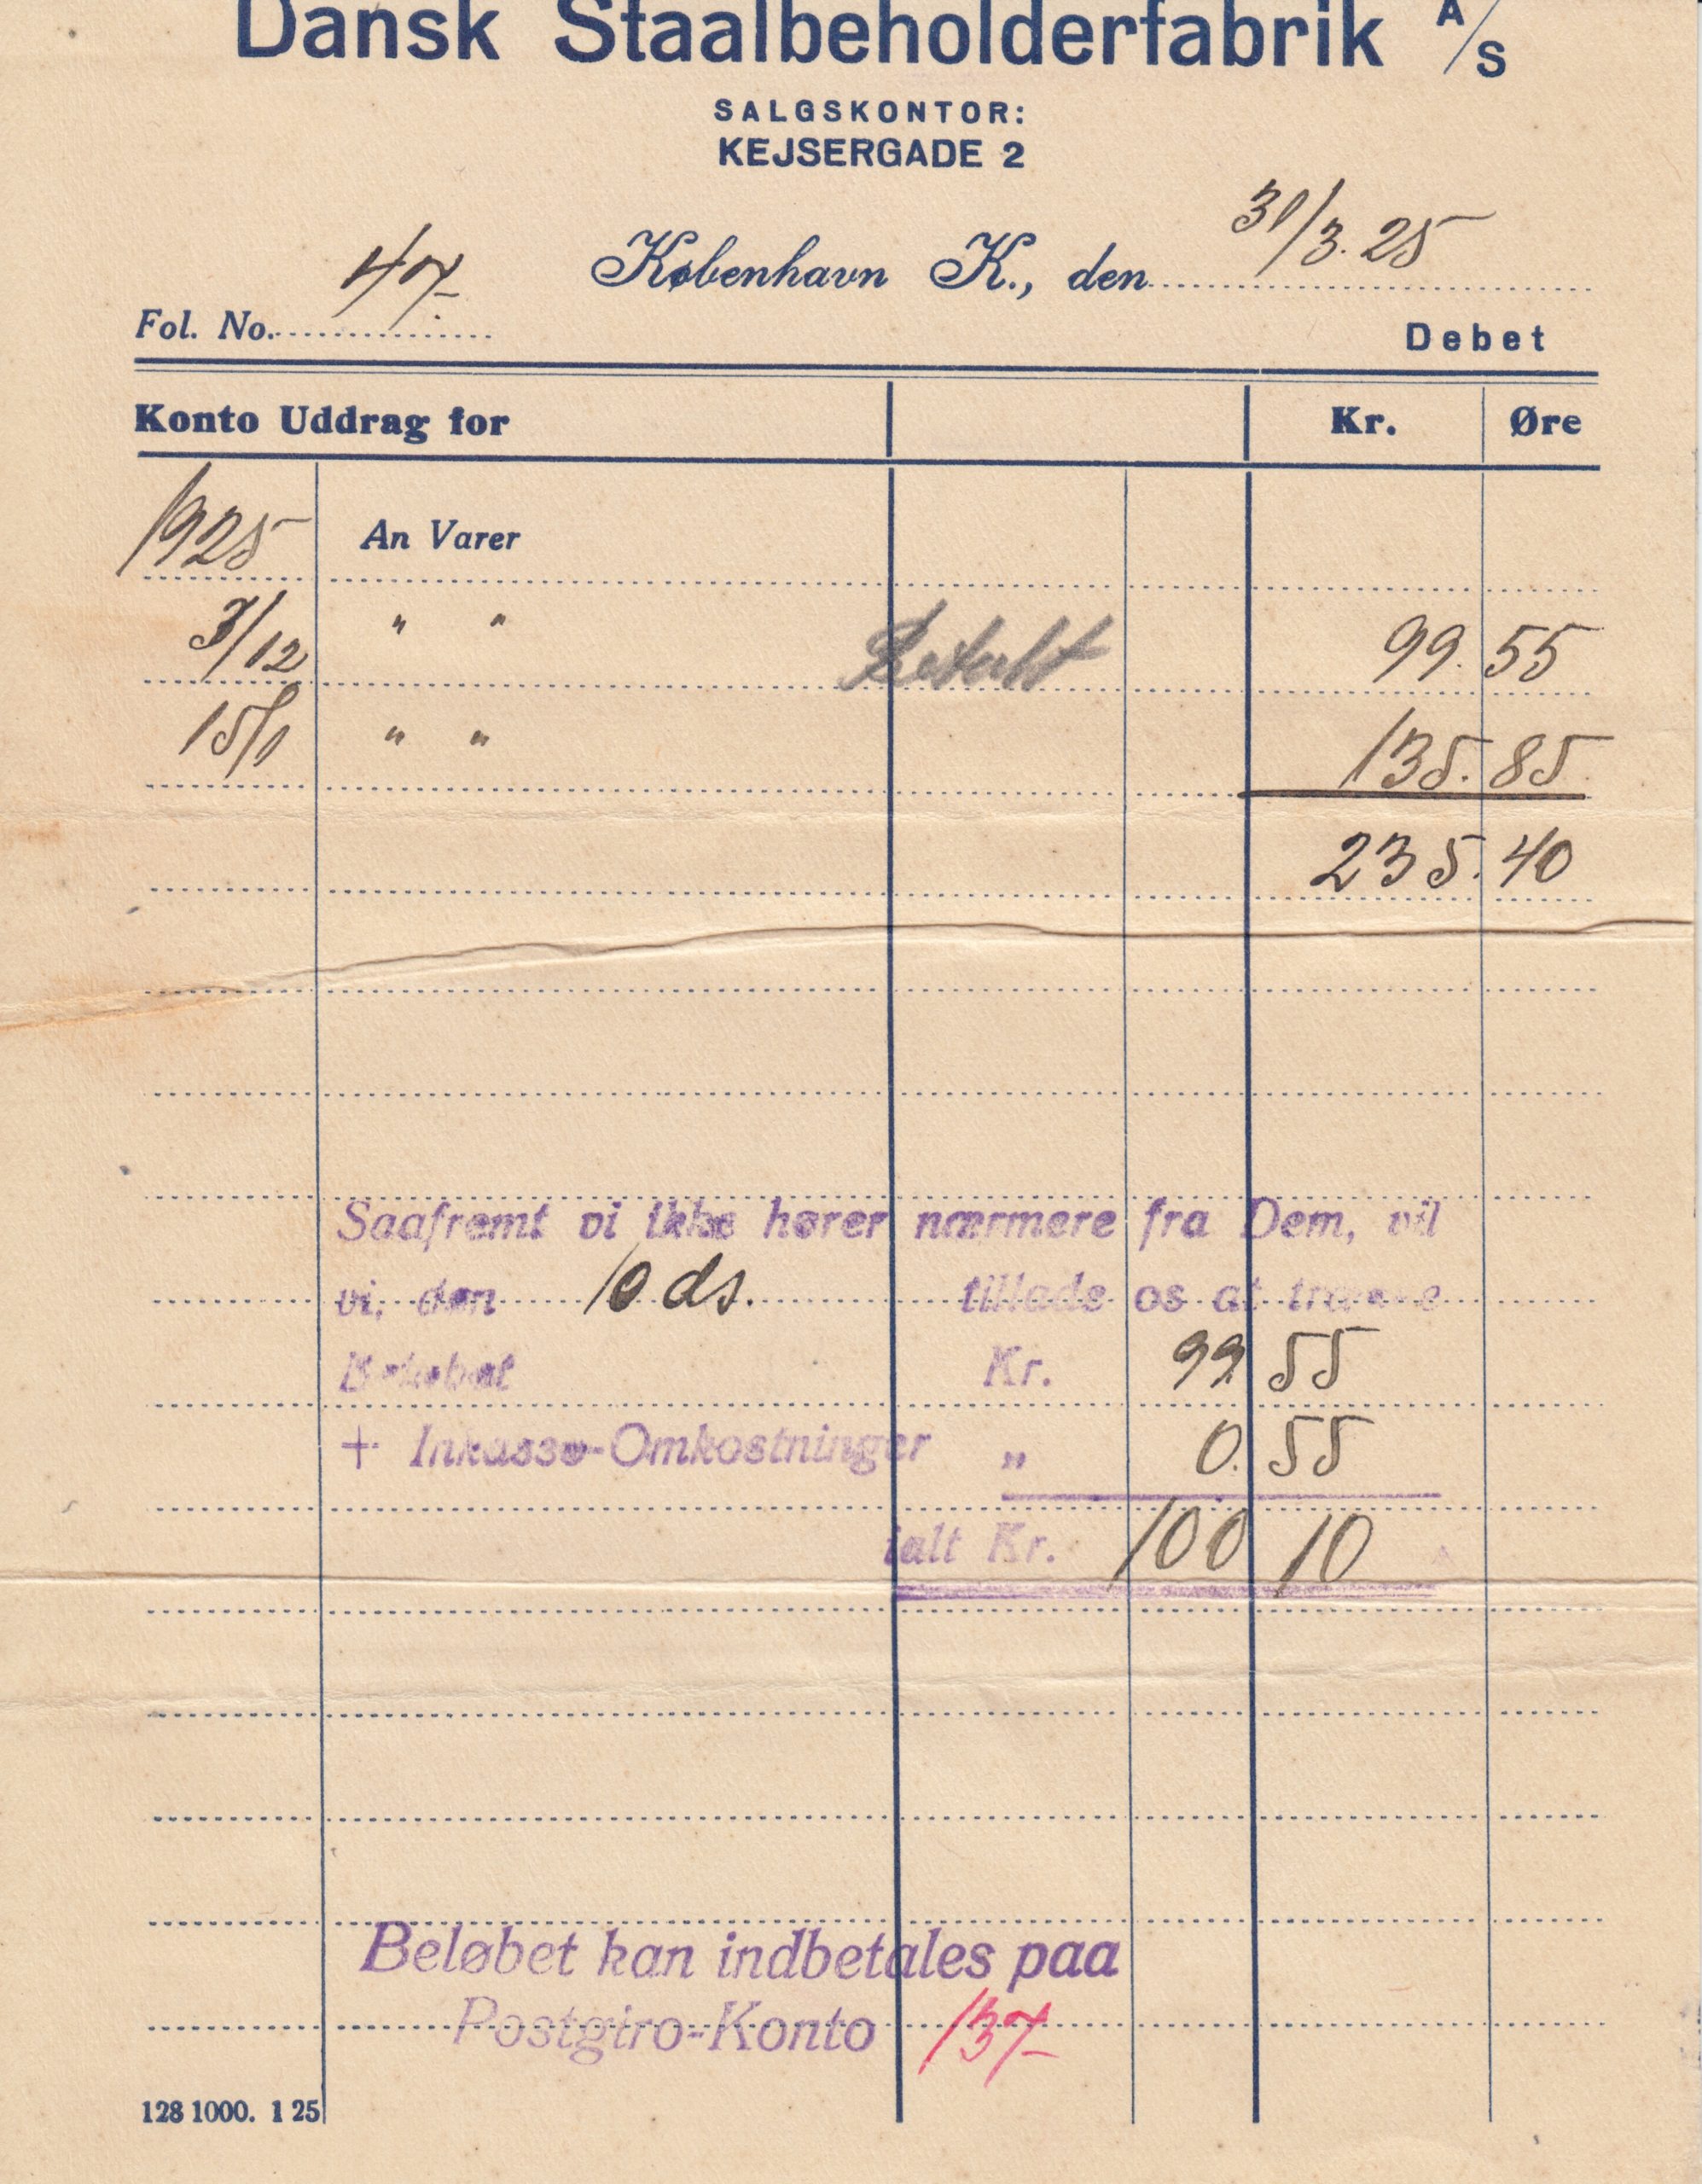 Dansk Staalbeholderfabrik A/S
SALGSKONTOR:
KEJSERGADE 2
København K., den 31/3. 25
Fol. No. 47.
Debet
Konto Uddrag for Kr. Øre
1925 An Varer
3/12 " " Betalt 99. 55
15/1 " " 135. 85
235. 40
Saafremt vi ikke hører nærmere fra Dem, vil
vi, den 10 ds. tillade os at trække
Beløbet Kr. 99 55
+ Inkasso-Omkostninger " 0. 55
ialt Kr. 100 10
Beløbet kan indbetales paa
Postgiro-Konto 137
128 1000. 1 25